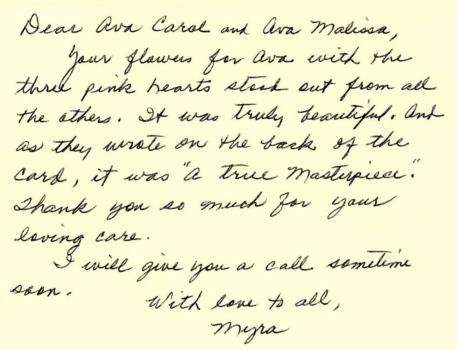 Dear Ava Carol and Ava Malissa,
Your flowers for Ava with the
three pink hearts stood out from all
the others. It was truly beautiful. And
as they wrote on the back of the
card, it was "A true Masterpiece".
Thank you so much for your
loving care.
I will give you a call sometime
soon.
With love to all,
Myra